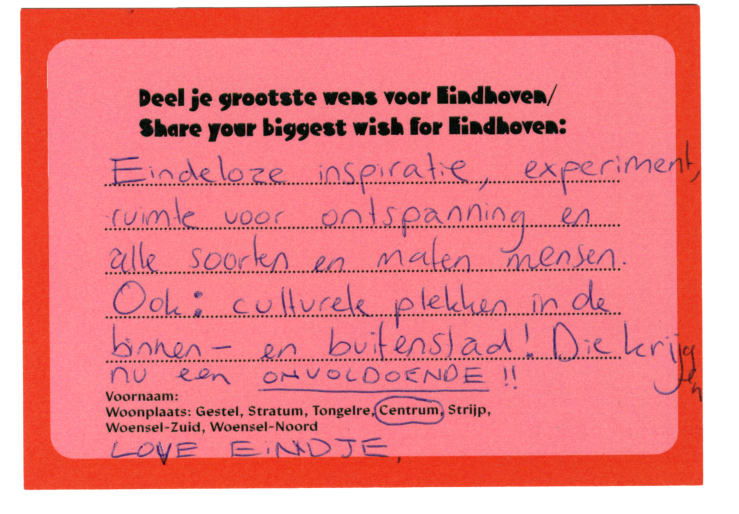 Deel je grootste wens voor Eindhoven/
Share your biggest wish for Eindhoven:
Eindeloze inspiratie, experiment,
ruimte voor ontspanning en
alle soorten en maten mensen.
Ook: culturele plekken in de
binnen- en buitenstad! Die krijgen
nu een ONVOLDOENDE!!
Voornaam:
Woonplaats: Gestel, Stratum, Tongelre, Centrum, Strijp,
Woensel-Zuid, Woensel-Noord
LOVE EINDJE,